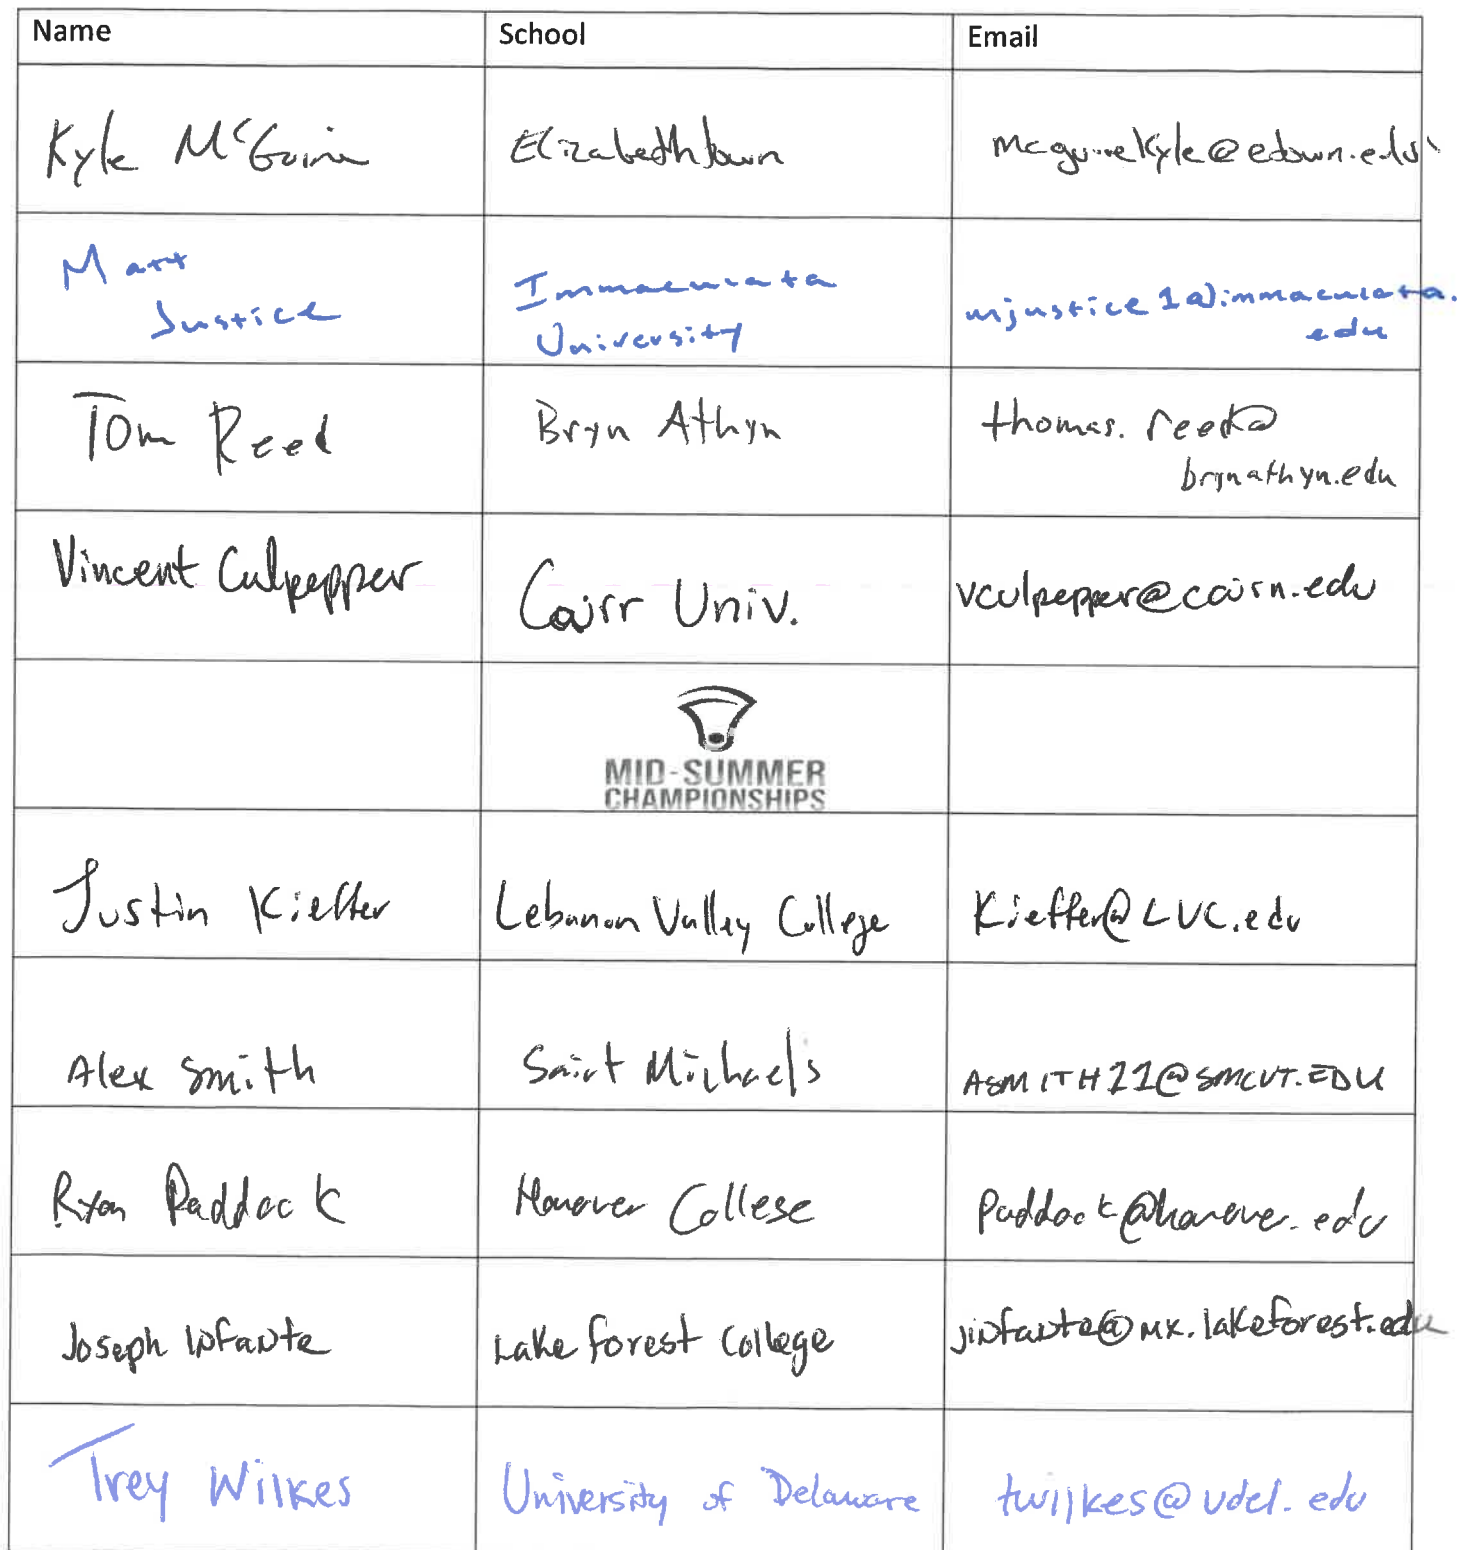 Name School Email
Kyle McGuire Elizabethtown mcguirekyle@etown.edu
Matt Immaculata mjustice1@immaculata.
Justice University edu
Tom Reed Bryn Athyn thomas.reed@
brynathyn.edu
Vincent Culpepper Cairn Univ. vculpepper@cairn.edu
MID-SUMMER
CHAMPIONSHIPS
Justin Kieffer Lebanon Valley College Kieffer@LVC.edu
Alex Smith Saint Michaels ASMITH22@SMCVT.EDU
Ryan Paddock Hanover College Paddock@hanover.edu
Joseph Infante Lake Forest College jinfante@mx.lakeforest.edu
Trey Wilkes University of Delaware twilkes@udel.edu